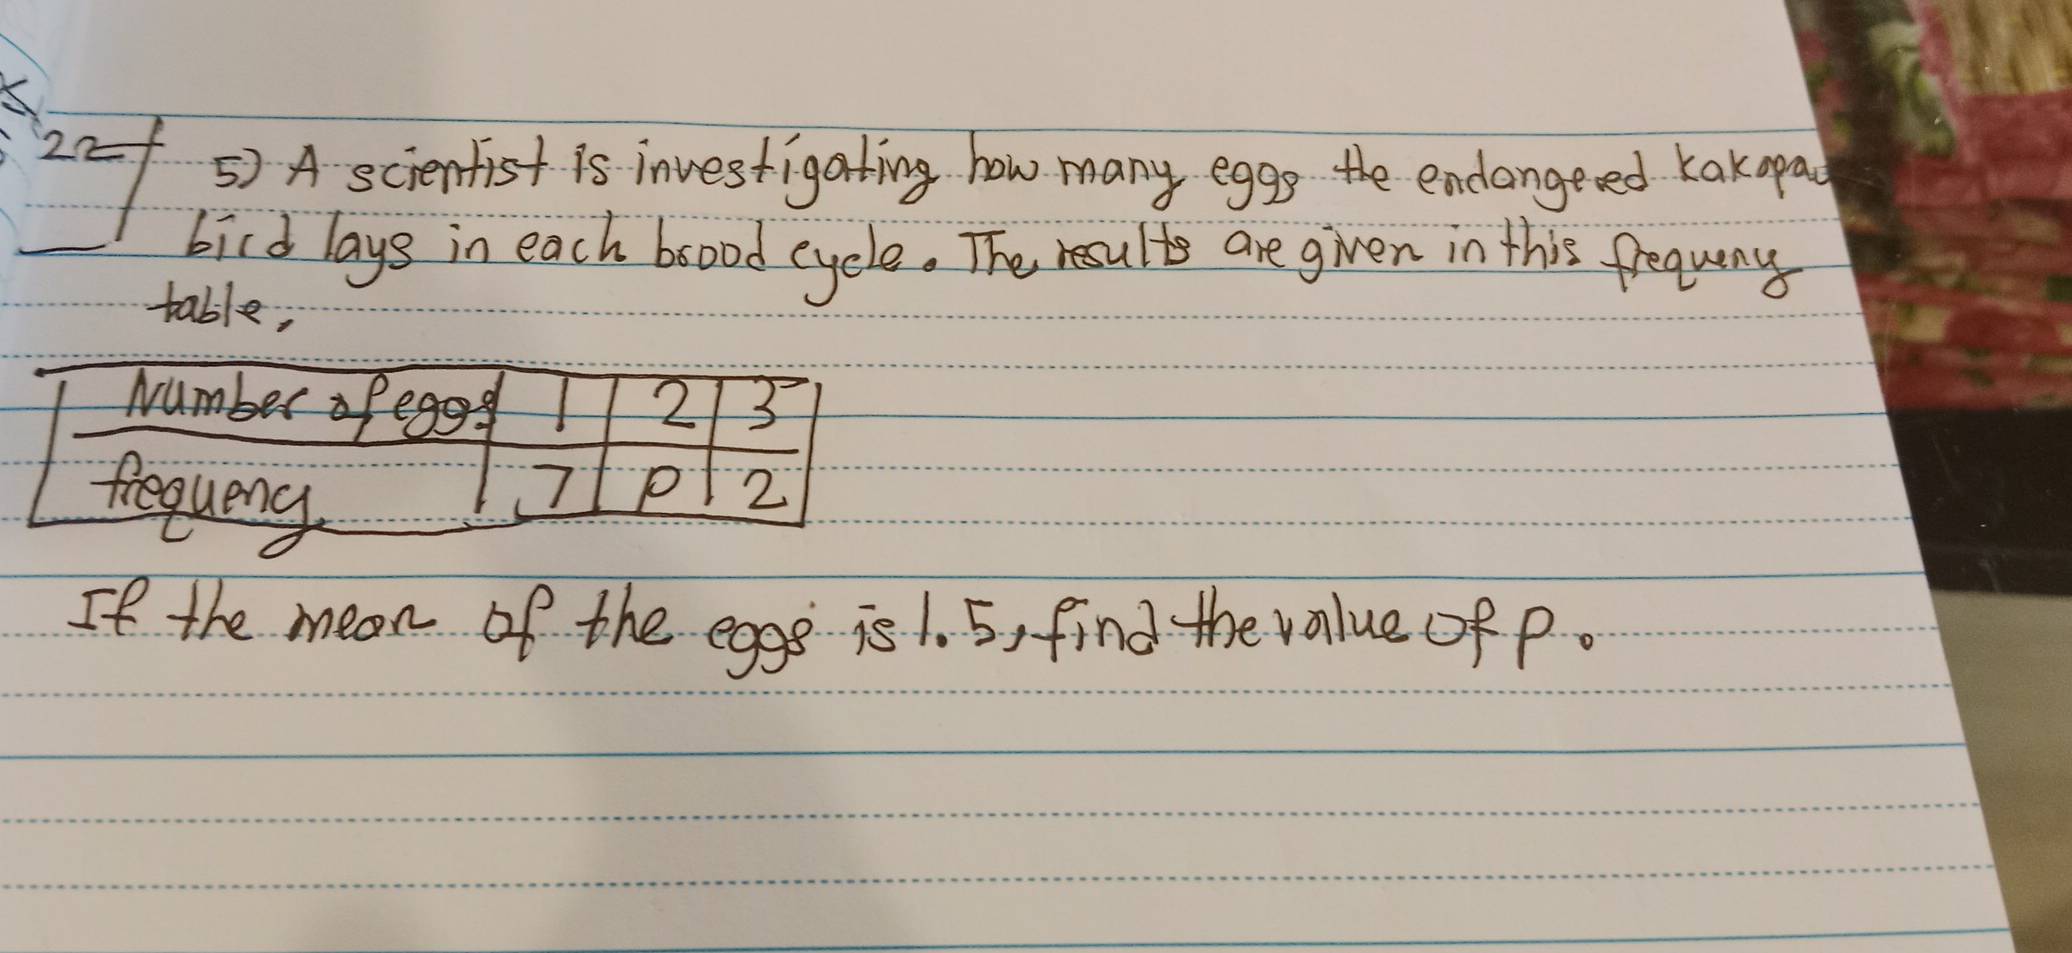 22
5) A scientist is investigating how many eggs the endangered kakopau
bird lays in each brood cycle. The results are given in this frequeny
table,
Number of eggs 1 2 3
frequeny 7 p 2
If the mean of the eggs is 1.5, find the value of p.